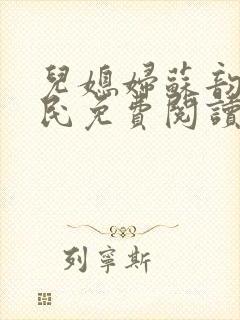 兒媳婦蘇韵
民免費閱讀
列寧斯